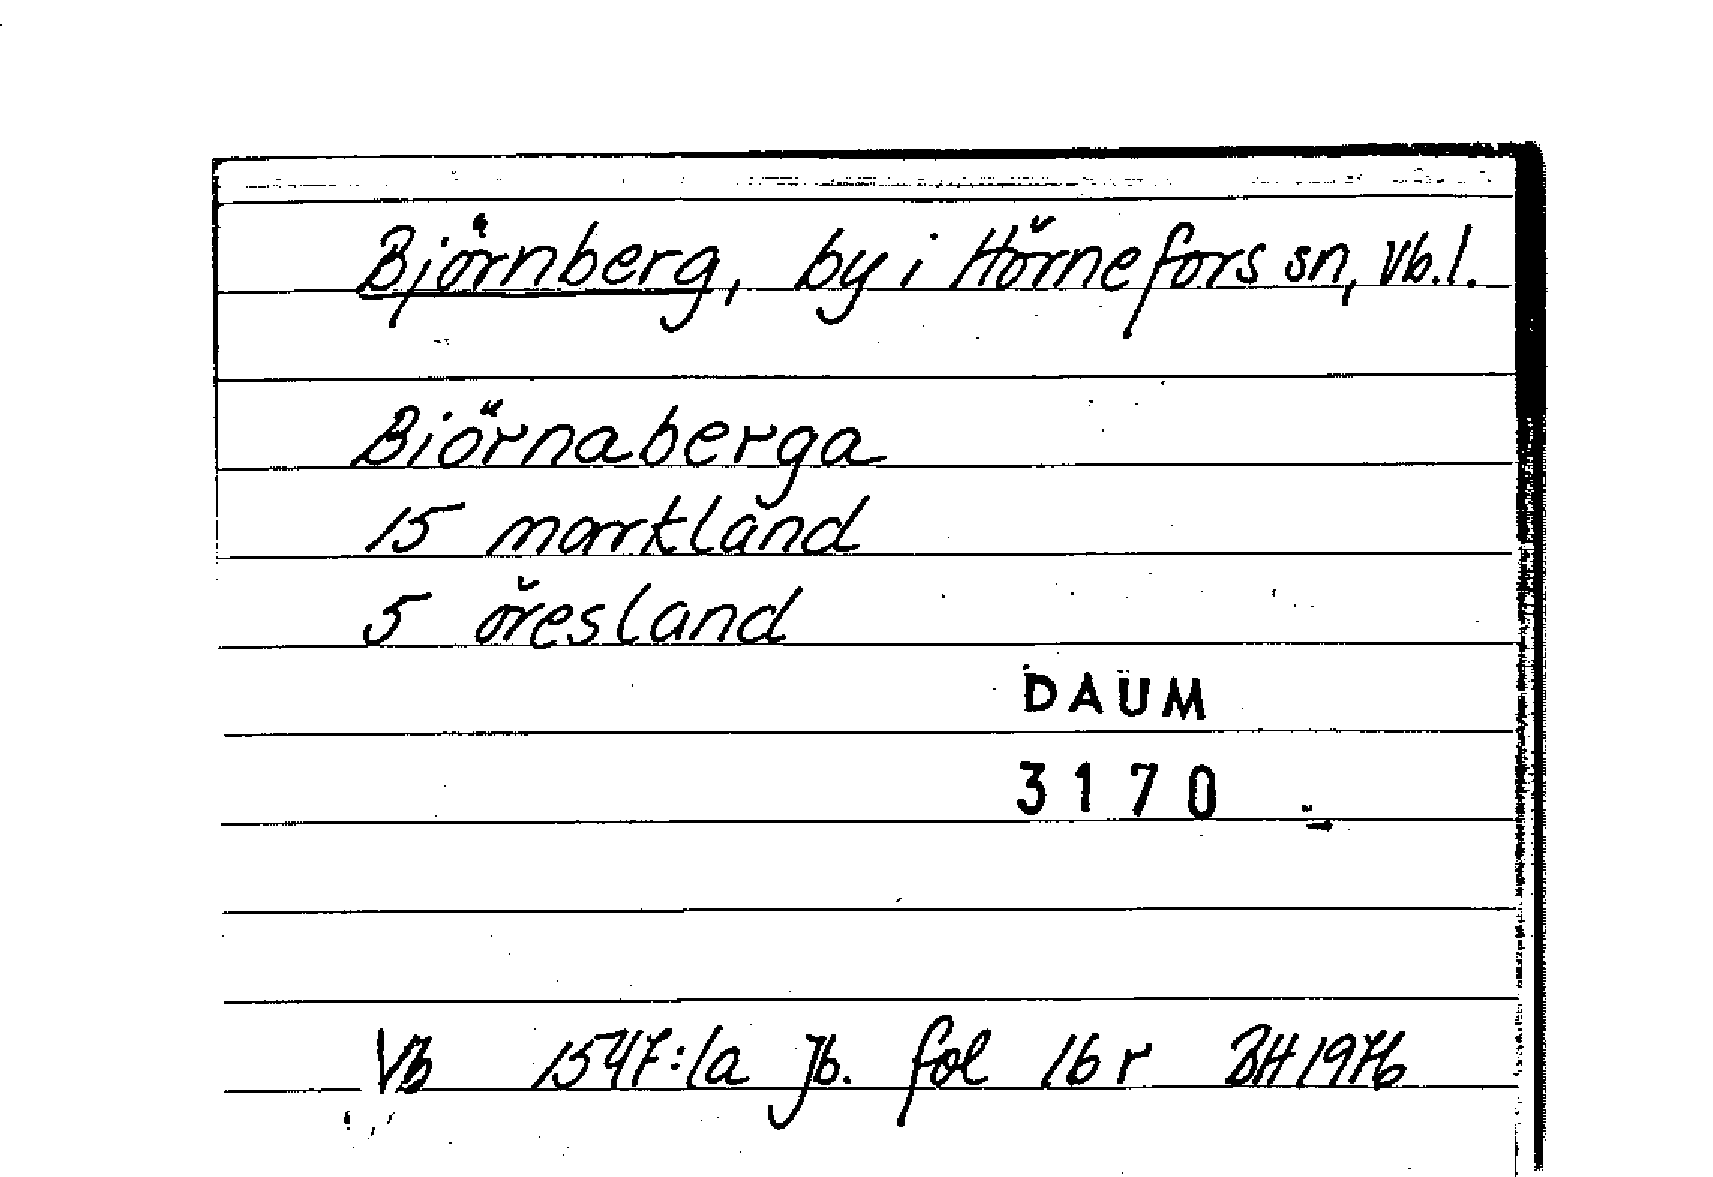 Björnberg, by i Hörnefors sn, Vb.l.
Biörnaberga
15 markland
5 öresland
DAUM
3170
Vb 1547:1a Jb. fol 16 r BH 1976